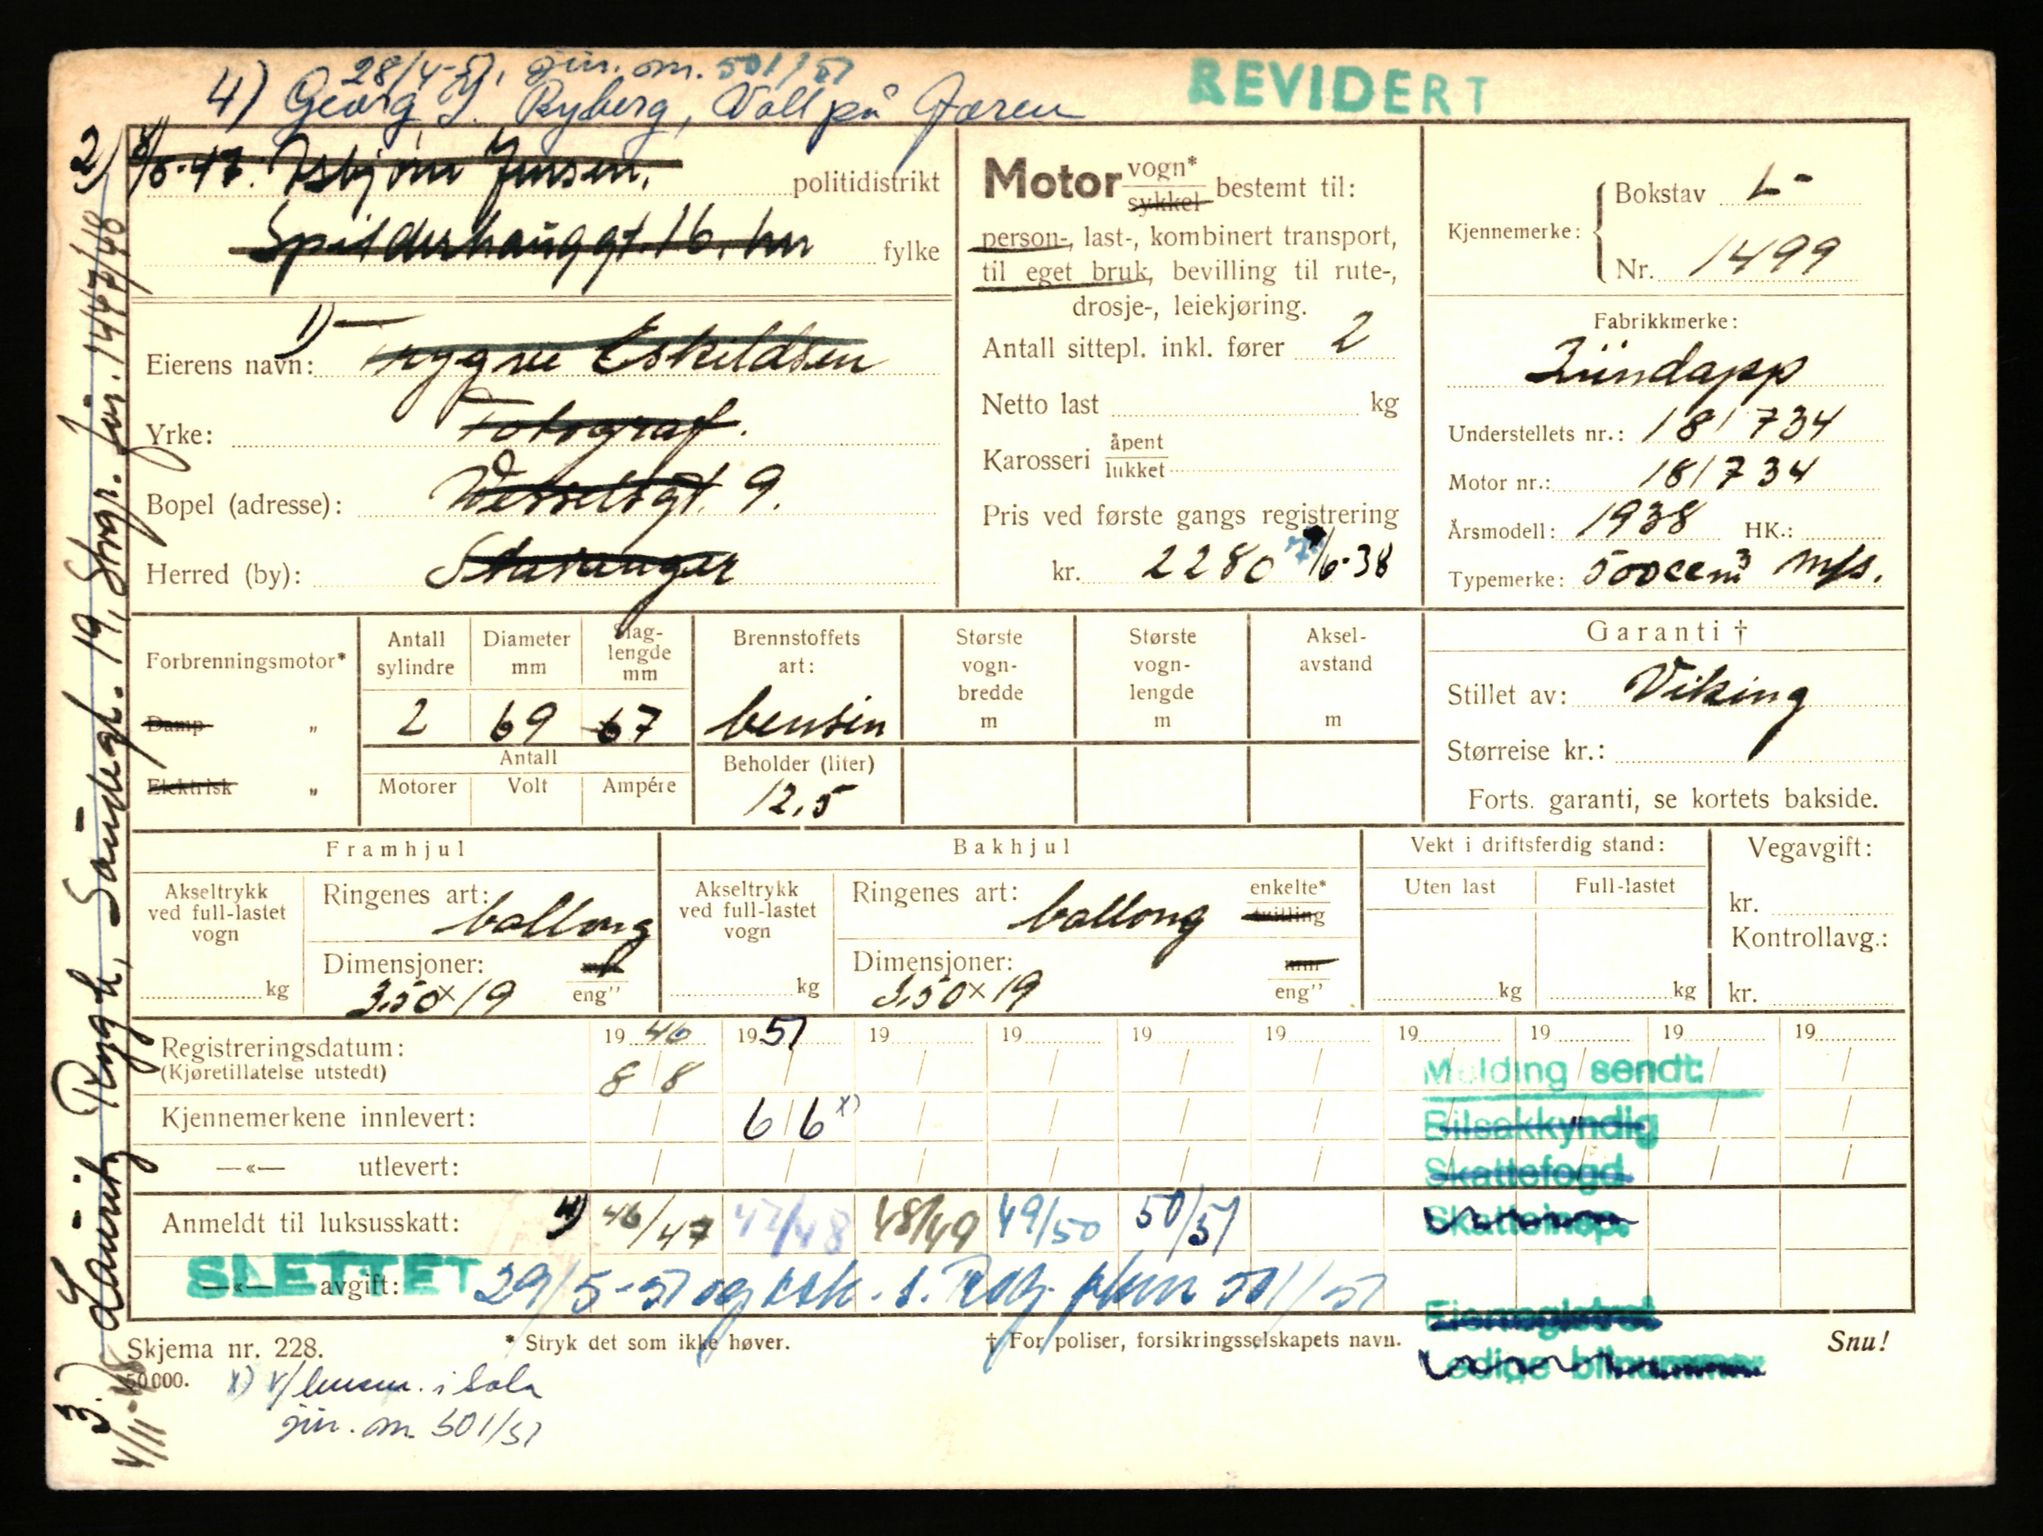 28/4-51, jnr. om. 501/51
4) Georg I. Ryberg, Voll på Jæren
REVIDERT
2) 8/5-47. Asbjørn Jensen,
politidistrikt
Spilderhauggt. 16. her
fylke
1)
Eierens navn: Trygve Eskildsen
Yrke: Fotograf.
Bopel (adresse): Wesselsgt. 9.
Herred (by): Stavanger
Motor vogn* sykkel bestemt til:
person-, last-, kombinert transport,
til eget bruk, bevilling til rute-,
drosje-, leiekjøring.
Antall sittepl. inkl. fører 2
Netto last kg
Karosseri åpent lukket
Pris ved første gangs registrering
kr. 2280 9/6-38
Kjennemerke: Bokstav L-
Nr. 1499
Fabrikkmerke:
Zündapp
Understellets nr.: 181734
Motor nr.: 181734
Årsmodell: 1938 HK.:
Typemerke: 500ccm3 m/s.
Forbrenningsmotor*
Damp "
Elektrisk "
Antall sylindre
2
Diameter mm
69
Slag-lengde mm
67
Antall
Motorer Volt Ampére
Brennstoffets art:
bensin
Beholder (liter)
12,5
Største vogn-bredde m
Største vogn-lengde m
Aksel-avstand m
Garanti †
Stillet av: Viking
Størreise kr.:
Forts. garanti, se kortets bakside.
Framhjul
Akseltrykk ved full-lastet vogn kg
Ringenes art: ballong
Dimensjoner: mm eng"
3.50x19
Bakhjul
Akseltrykk ved full-lastet vogn kg
Ringenes art: ballong enkelte* tvilling
Dimensjoner: mm eng"
3.50x19
Vekt i driftsferdig stand:
Uten last Full-lastet
kg kg
Vegavgift:
kr.
Kontrollavg.:
kr.
Registreringsdatum: 1946 1951 19 19 19 19 19 19 19 19
(Kjøretillatelse utstedt) 8/8
Kjennemerkene innlevert: 6/6 x)
—«— utlevert:
Anmeldt til luksusskatt: 46/47 47/48 48/49 49/50 50/51
—«— avgift: 29/5-51
SLETTET
Melding sendt:
Bilsakkyndig
Skattefogd
Skatteinsp.
Eierregistret
Ledige bilnummer
Skjema nr. 228.
50000.
* Stryk det som ikke høver.
† For poliser, forsikringsselskapets navn.
Snu!
x) v/lensm. i Sola
jnr. om. 501/51
3.) Lauritz Rygh, Sandegt. 19, Stvgr. jnr. 1447/48
4/11-48